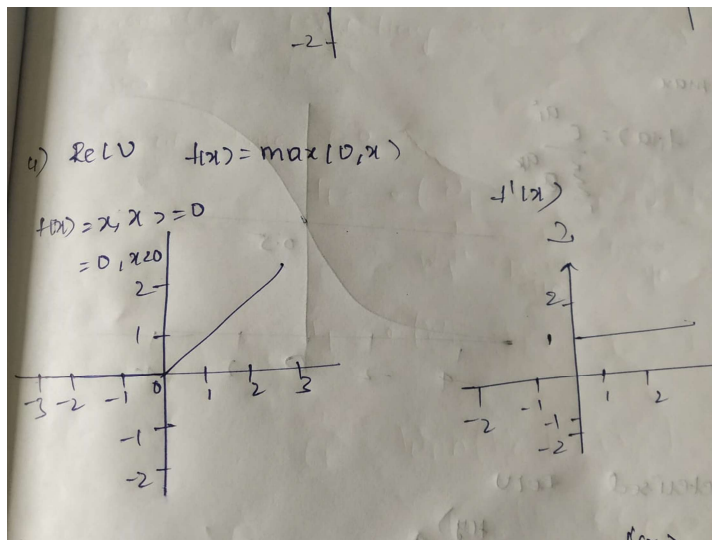 -2
4) ReLU f(x) = max(0,x)
f'(x)
f(x) = x, x >=0
= 0, x<0
2
1
0
-3 -2 -1 1 2 3
-1
-2
2
1
-2 -1 1 2
-1
-2